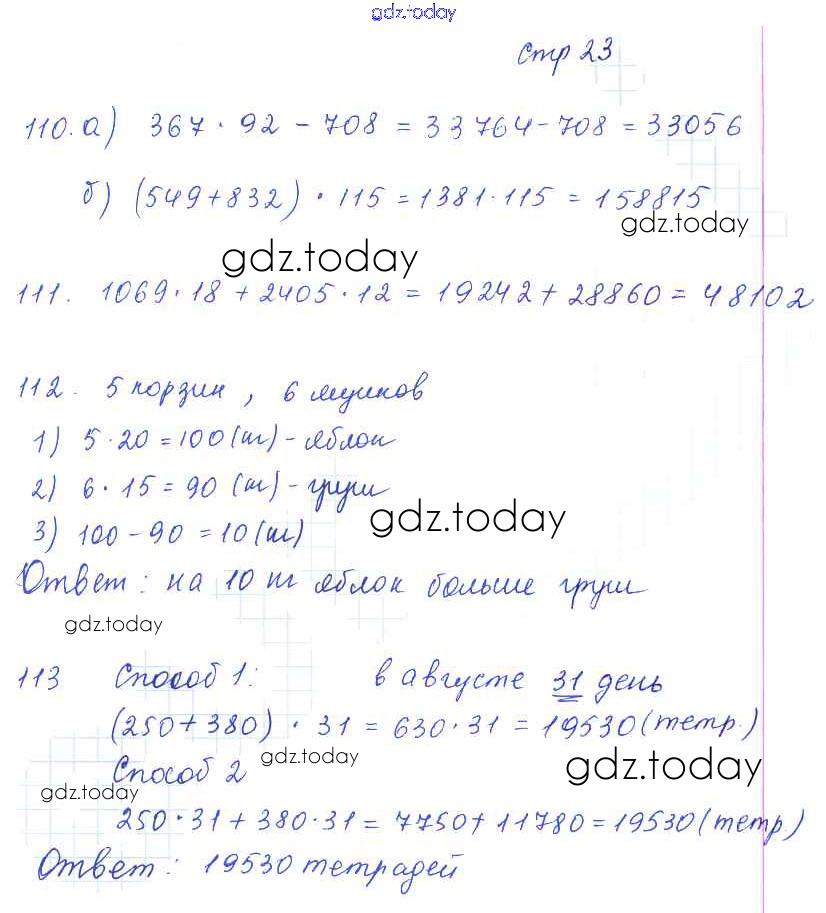 gdz.today
Стр 23
110. а) 367 · 92 - 708 = 33764 - 708 = 33056
б) (549 + 832) · 115 = 1381 · 115 = 158815
gdz.today
gdz.today
111. 1069 · 18 + 2405 · 12 = 19242 + 28860 = 48102
112. 5 корзин, 6 ящиков
1) 5 · 20 = 100 (кг) - яблок
2) 6 · 15 = 90 (кг) - груш
gdz.today
3) 100 - 90 = 10 (кг)
Ответ: на 10 кг яблок больше груш
gdz.today
113 Способ 1: в августе 31 день
(250 + 380) · 31 = 630 · 31 = 19530 (тетр.)
gdz.today
Способ 2
gdz.today
gdz.today
250 · 31 + 380 · 31 = 7750 + 11780 = 19530 (тетр)
Ответ: 19530 тетрадей